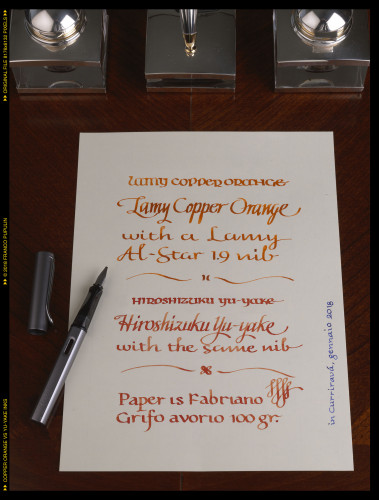 Lamy Copper Orange
Lamy Copper Orange
with a Lamy
Al-Star 1.9 nib
Hiroshizuku Yu-yake
Hiroshizuku Yu-yake
with the same nib
Paper is Fabriano
Grifo avorio 100 gr.
in Curriravá, gennaio 2018
© 2018 FRANCO PUPULIN
COPPER ORANGE VS YU-YAKE INKS